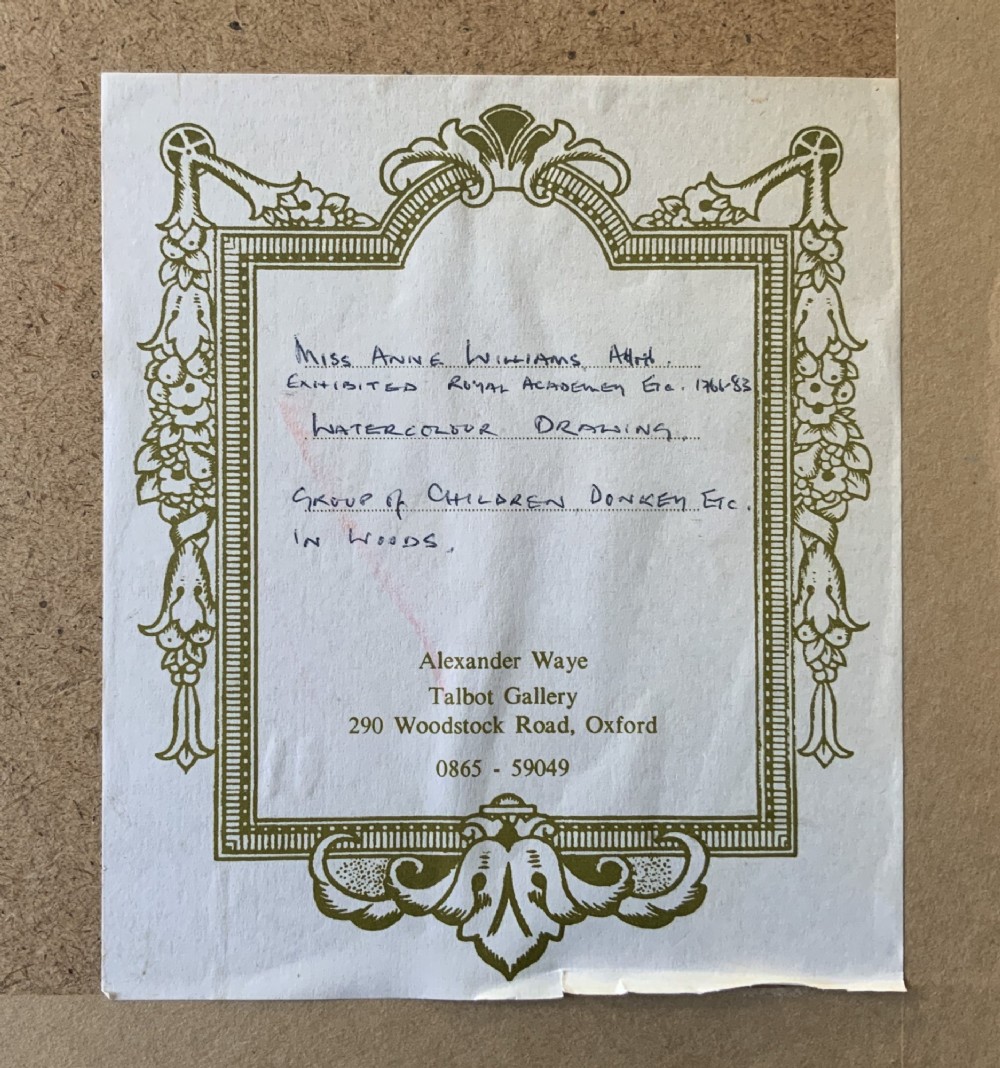 MISS ANNE WILLIAMS
EXHIBITED ROYAL ACADEMEY ETC.
WATERCOLOUR DRAWING.
GROUP of CHILDREN DONKEY ETC.
IN WOODS.
Alexander Waye
Talbot Gallery
290 Woodstock Road, Oxford
0865 - 59049